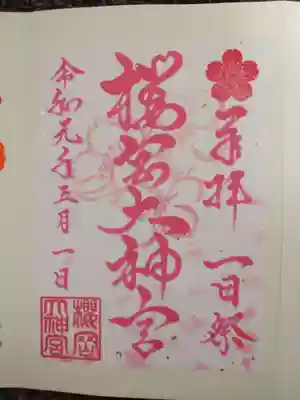 奉拝 一日祭
櫻岡大神宮
令和六年三月一日
櫻岡
大神宮